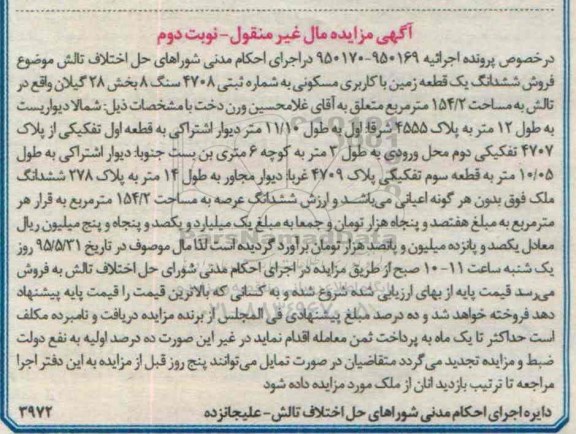 آگهی مزایده مال غیر منقول-نوبت دوم
درخصوص پرونده اجرائیه ۹۵۰۱۶۹-۹۵۰۱۷۰ دراجرای احکام مدنی شوراهای حل اختلاف تالش موضوع
فروش ششدانگ یک قطعه زمین با کاربری مسکونی به شماره ثبتی ۴۷۰۸ سنگ ۸ بخش ۲۸ گیلان واقع در
تالش به مساحت ۱۵۴/۲ مترمربع متعلق به آقای غلامحسین ورن دخت با مشخصات ذیل: شمالا دیواریست
به طول ۱۲ متر به پلاک ۴۵۵۵ شرقا: اول به طول ۱۱/۱۰ متر دیوار اشتراکی به قطعه اول تفکیکی از پلاک
۴۷۰۷ تفکیکی دوم محل ورودی به طول ۳ متر به کوچه ۶ متری بن بست جنوبا: دیوار اشتراکی به طول
۱۰/۰۵ متر به قطعه سوم تفکیکی پلاک ۴۷۰۹ غربا: دیوار مجاور به طول ۱۴ متر به پلاک ۲۷۸ ششدانگ
ملک فوق بدون هر گونه اعیانی می‌باشد و ارزش ششدانگ عرصه به مساحت ۱۵۴/۲ مترمربع به قرار هر
مترمربع به مبلغ هفتصد و پنجاه هزار تومان و جمعا به مبلغ یک میلیارد و یکصد و پنجاه و پنج میلیون ریال
معادل یکصد و پانزده میلیون و پانصد هزار تومان برآورد گردیده است لذا مال موصوف در تاریخ ۹۵/۵/۳۱ روز
یک شنبه ساعت ۱۱-۱۰ صبح از طریق مزایده در اجرای احکام مدنی شورای حل اختلاف تالش به فروش
می‌رسد قیمت پایه از بهای ارزیابی شده شروع شده و به کسانی که بالاترین قیمت را قیمت پایه پیشنهاد
دهد فروخته خواهد شد و ده درصد مبلغ پیشنهادی فی المجلس از برنده مزایده دریافت و نامبرده مکلف
است حداکثر تا یک ماه به پرداخت ثمن معامله اقدام نماید در غیر این صورت ده درصد اولیه به نفع دولت
ضبط و مزایده تجدید می‌گردد متقاضیان در صورت تمایل می‌توانند پنج روز قبل از مزایده به این دفتر اجرا
مراجعه تا ترتیب بازدید انان از ملک مورد مزایده داده شود
دایره اجرای احکام مدنی شوراهای حل اختلاف تالش-علیجانزده
۳۹۷۲